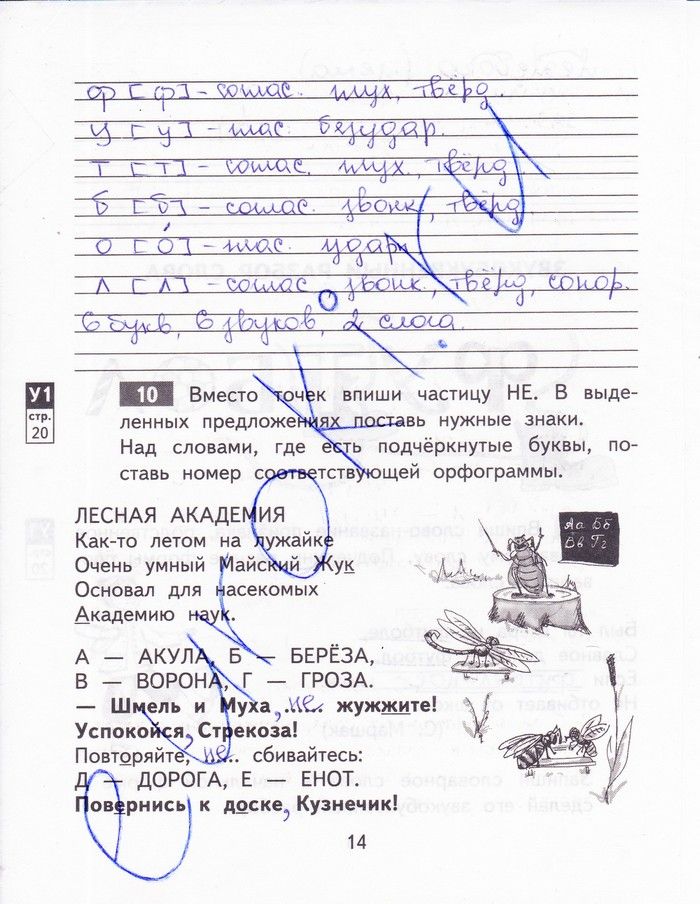 ф [ф] – соглас. глух., твёрд.
у [у] – глас. безудар.
т [т] – соглас. глух., твёрд.
б [б] – соглас. звонк., твёрд.
о [о́] – глас. ударн.
л [л] – соглас. звонк., твёрд., сонор.
6 букв, 6 звуков, 2 слога.
У1
стр.
20
10 Вместо точек впиши частицу НЕ. В выде-
ленных предложениях поставь нужные знаки.
Над словами, где есть подчёркнутые буквы, по-
ставь номер соответствующей орфограммы.
ЛЕСНАЯ АКАДЕМИЯ
Как-то летом на лужайке
Очень умный Майский Жук
Основал для насекомых
Академию наук.
Аа Бб
Вв Гг
А — АКУЛА, Б — БЕРЁЗА,
В — ВОРОНА, Г — ГРОЗА.
— Шмель и Муха, не жужжите!
Успокойся, Стрекоза!
Повторяйте, не сбивайтесь:
Д — ДОРОГА, Е — ЕНОТ.
Повернись к доске, Кузнечик!
14